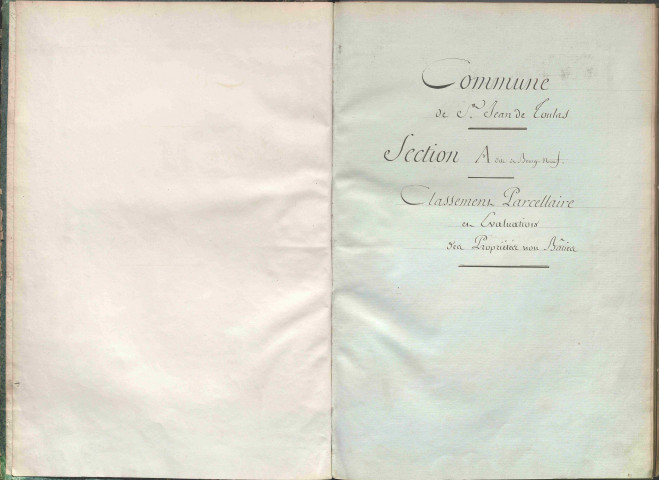 Commune
de St Jean de Toulas
Section A dite de Bourg-Neuf.
Classement Parcellaire
et Evaluation
des Propriétés non Bâties